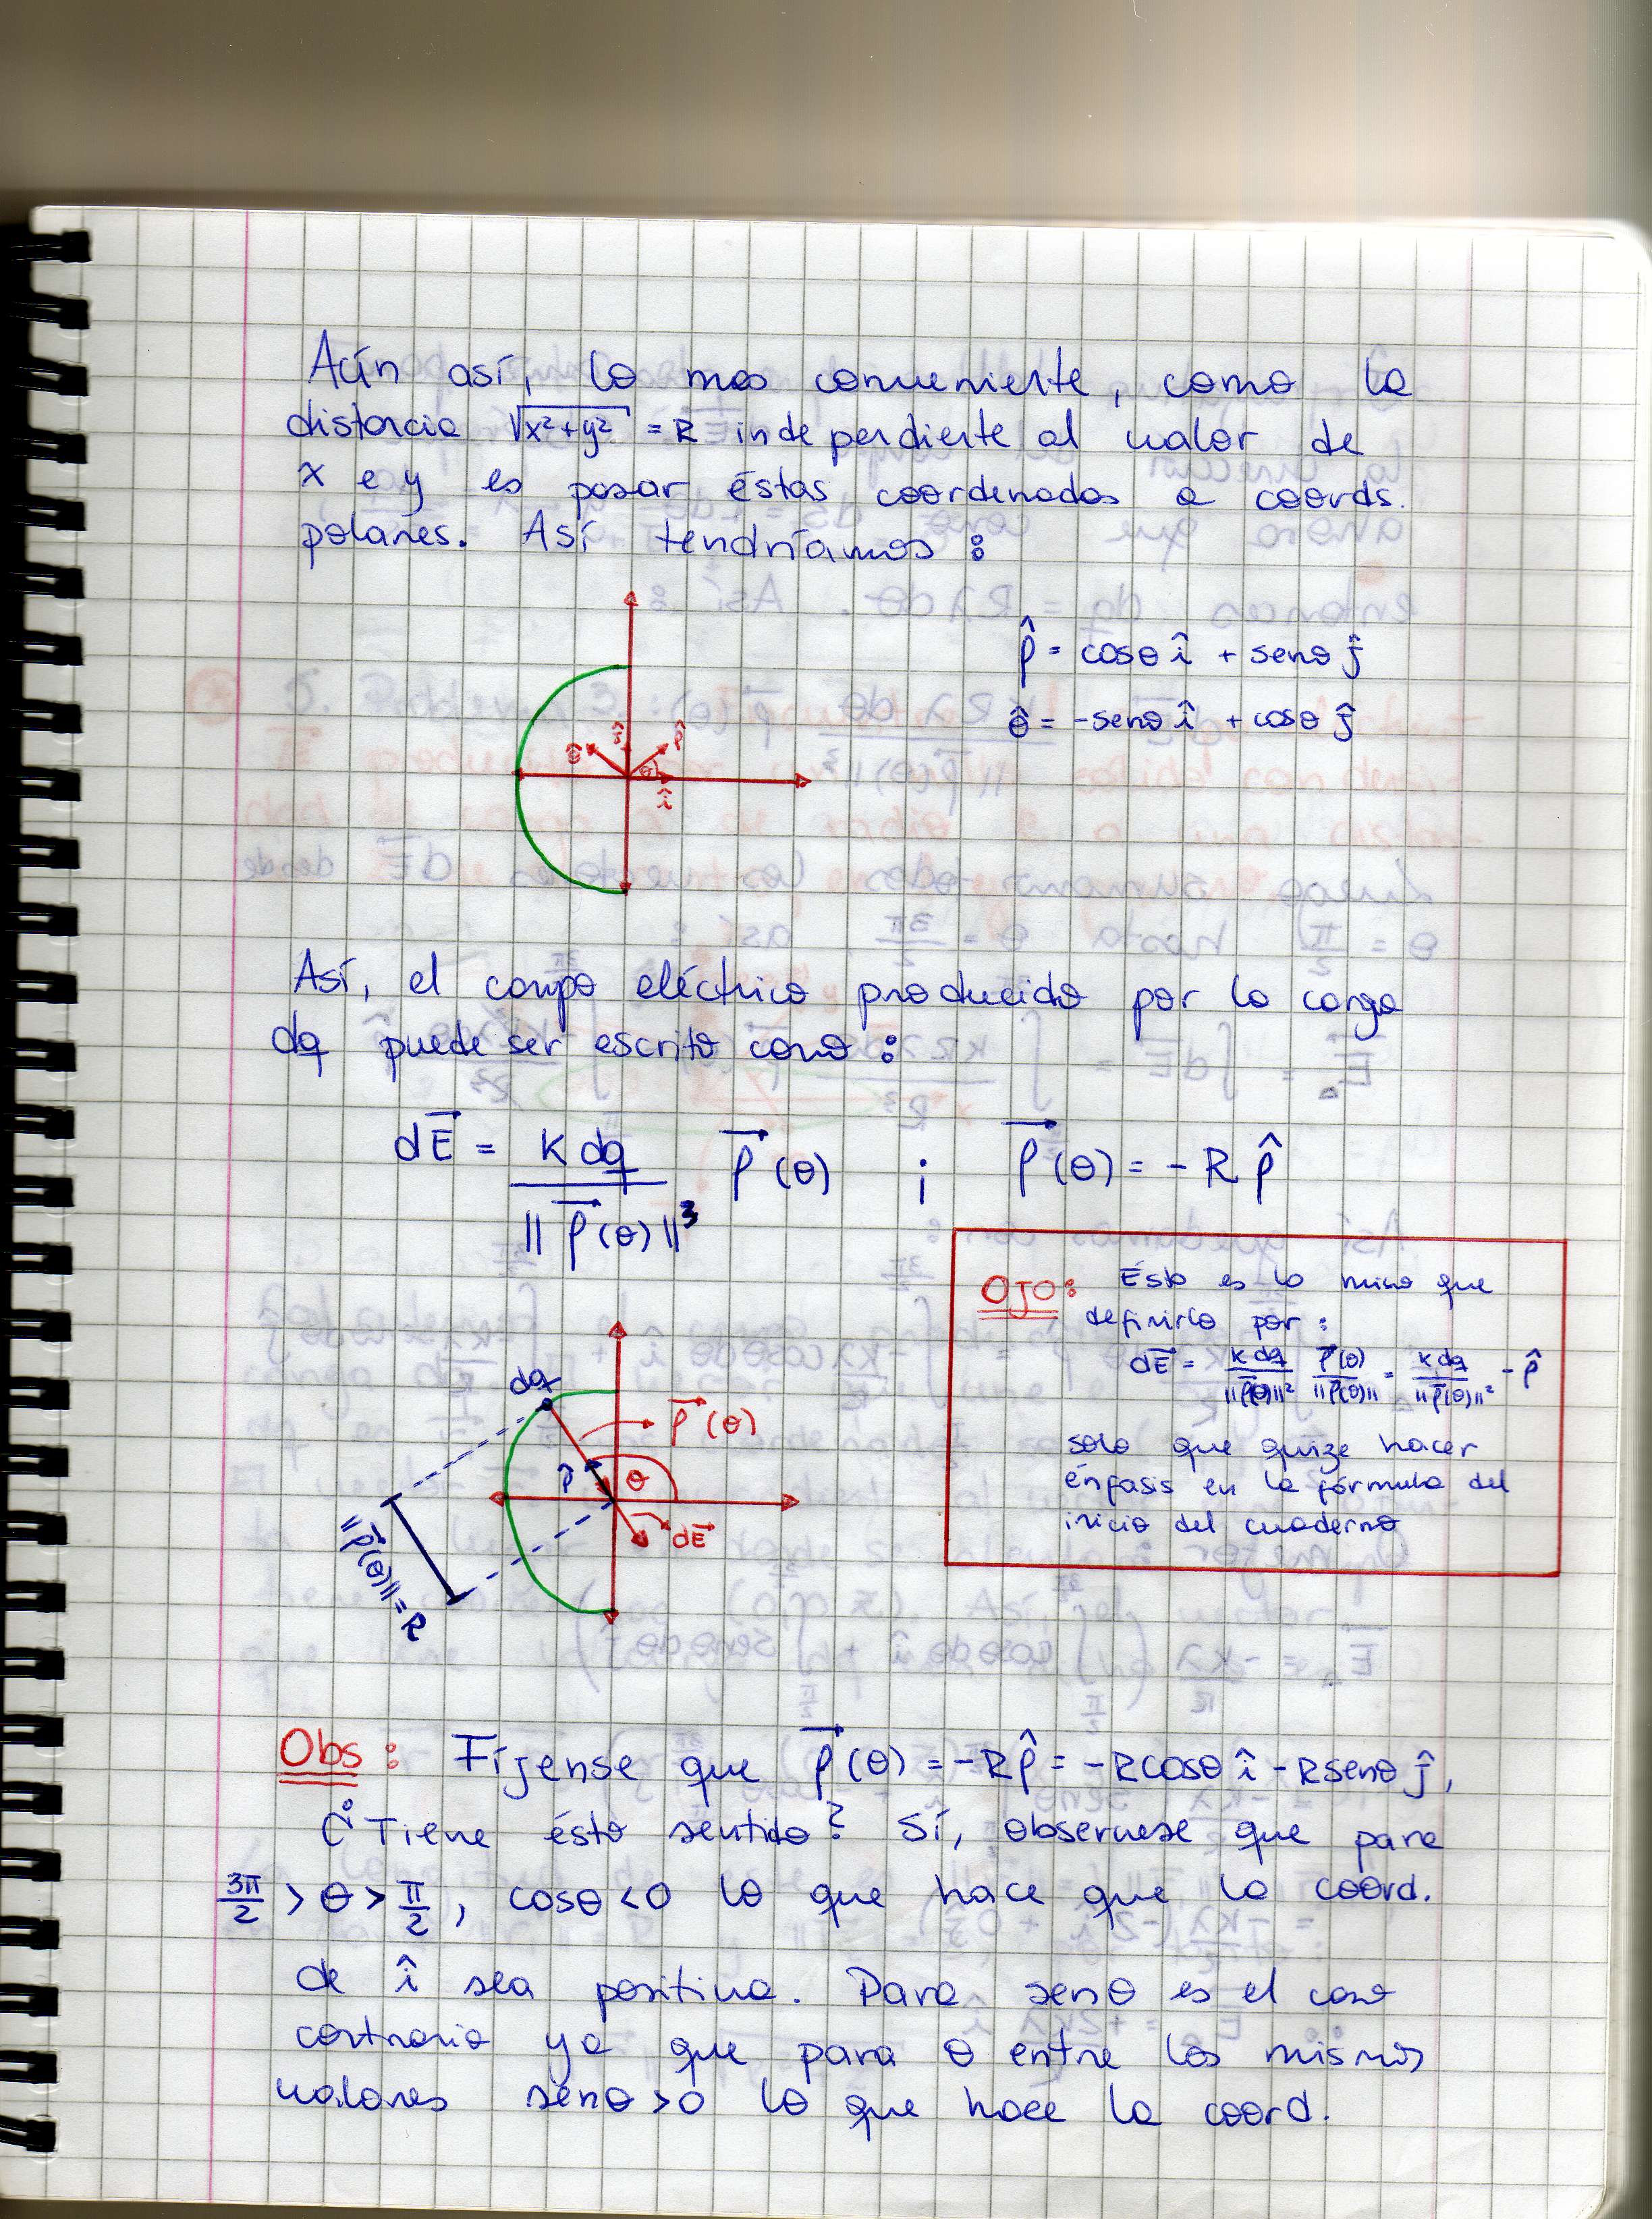 Aún así, lo mas conveniente, como la
distancia √x²+y² = R independiente al valor de
x e y es pasar éstas coordenadas a coords.
polares. Así tendríamos:
ρ̂ = cosθ î + senθ ĵ
θ̂ = -senθ î + cosθ ĵ
θ̂ ĵ ρ̂
θ
î
Así, el campo eléctrico producido por la carga
dq puede ser escrito como:
dE⃗ = K dq / ||ρ⃗(θ)||³ ρ⃗(θ) ; ρ⃗(θ) = -R ρ̂
OJO: Ésto es lo mismo que
definirlo por:
dE⃗ = K dq / ||ρ⃗(θ)||² ρ⃗(θ) / ||ρ⃗(θ)|| = K dq / ||ρ⃗(θ)||² - ρ̂
solo que quize hacer
énfasis en la fórmula del
inicio del cuaderno
dq
ρ⃗(θ)
ρ̂ θ
dE⃗
||ρ⃗(θ)|| = R
Obs: Fíjense que ρ⃗(θ) = -Rρ̂ = -Rcosθ î - Rsenθ ĵ,
¿Tiene ésto sentido? Sí, observese que para
3π/2 > θ > π/2, cosθ < 0 lo que hace que la coord.
de î sea positiva. Para senθ es el caso
contrario ya que para θ entre los mismos
valores senθ > 0 lo que hace la coord.